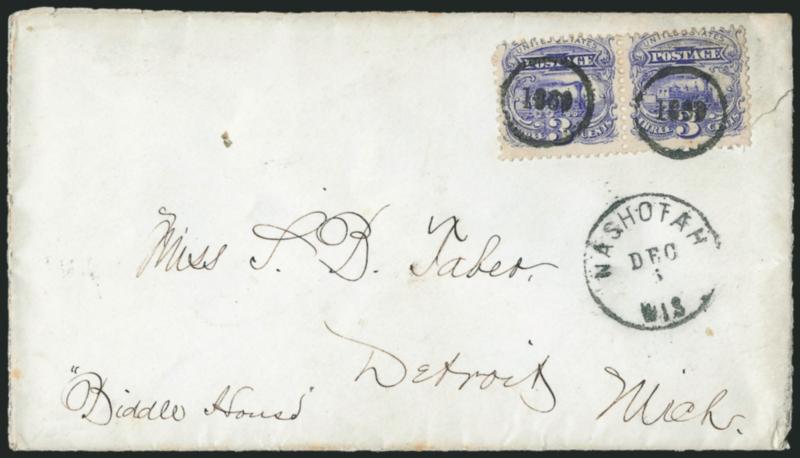 UNITED STATES UNITED STATES
POSTAGE POSTAGE
1869 1869
THREE 3 CENTS THREE 3 CENTS
NASHOTAH
DEC
WIS
Miss S. D. Taber.
Detroit
"Biddle House" Mich.